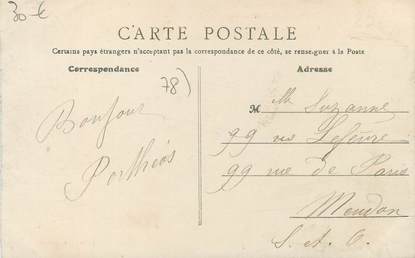 30 €
CARTE POSTALE
Certains pays étrangers n'acceptant pas la correspondance de ce côté, se renseigner à la Poste
Correspondance
Adresse
78)
Bonjour
Porthios
M Mlle Suzanne
99 rue Lefeuve
99 rue de Paris
Meudon
S. et O.